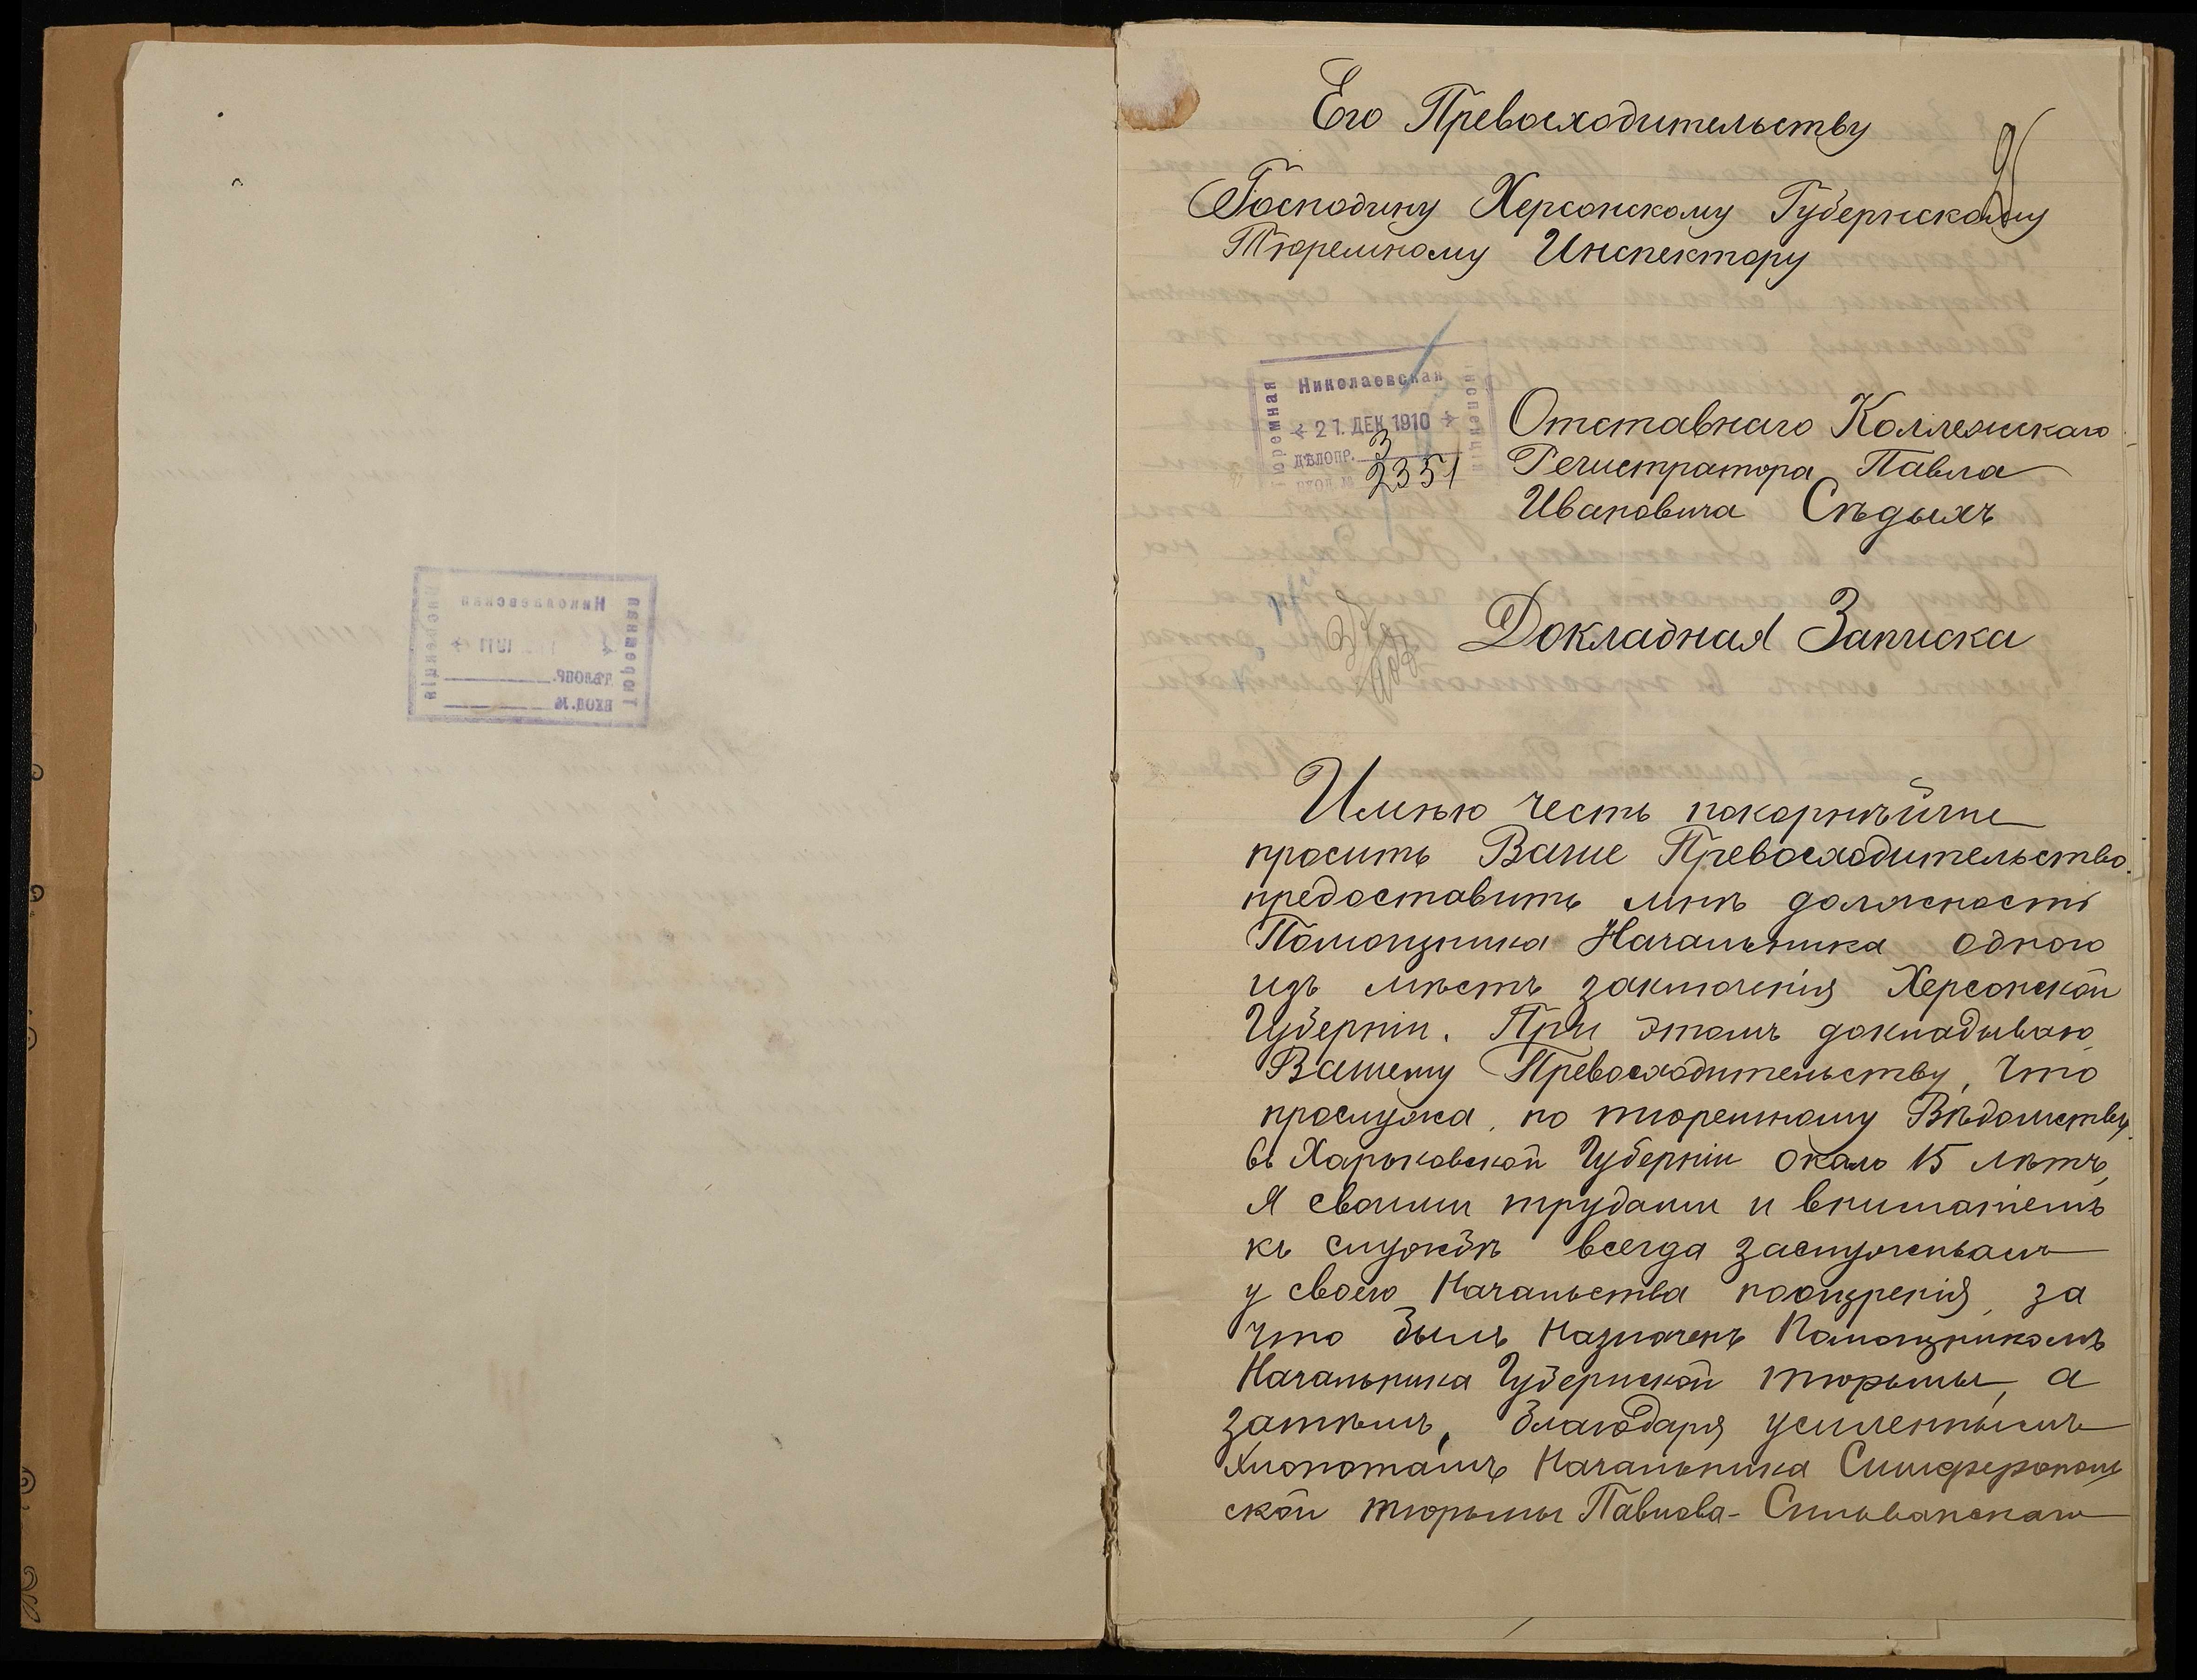 Его Превосходительству
Господину Херсонскому Губернскому
Тюремному Инспектору
Николаевская
Тюремная
21. ДЕК 1910
ДѢЛОПР. 3
ВХОД. № 2351
Отставнаго Коллежскаго
Регистратора Павла
Ивановича Сѣдыхъ
Докладная Записка
Имѣю честь покорнѣйше
просить Ваше Превосходительство
предоставить мнѣ должность
Помощника Начальника одного
изъ мѣстъ заключенія Херсонской
Губерніи. При этомъ докладываю
Вашему Превосходительству, что
прослужа по тюремному Вѣдомству
въ Харьковской Губерніи около 15 лѣтъ,
я своими трудами и вниманіемъ
къ службѣ всегда заслуживалъ
у своего Начальства поощренія, за
что былъ назначенъ Помощникомъ
Начальника Губернской тюрьмы, а
затѣмъ, благодаря усиленнымъ
хлопотамъ Начальника Симферополь
ской тюрьмы Павлова-Сильванскаго
Николаевская
Тюремная
Инспекція
1911
ДѢЛОПР.
ВХОД. №